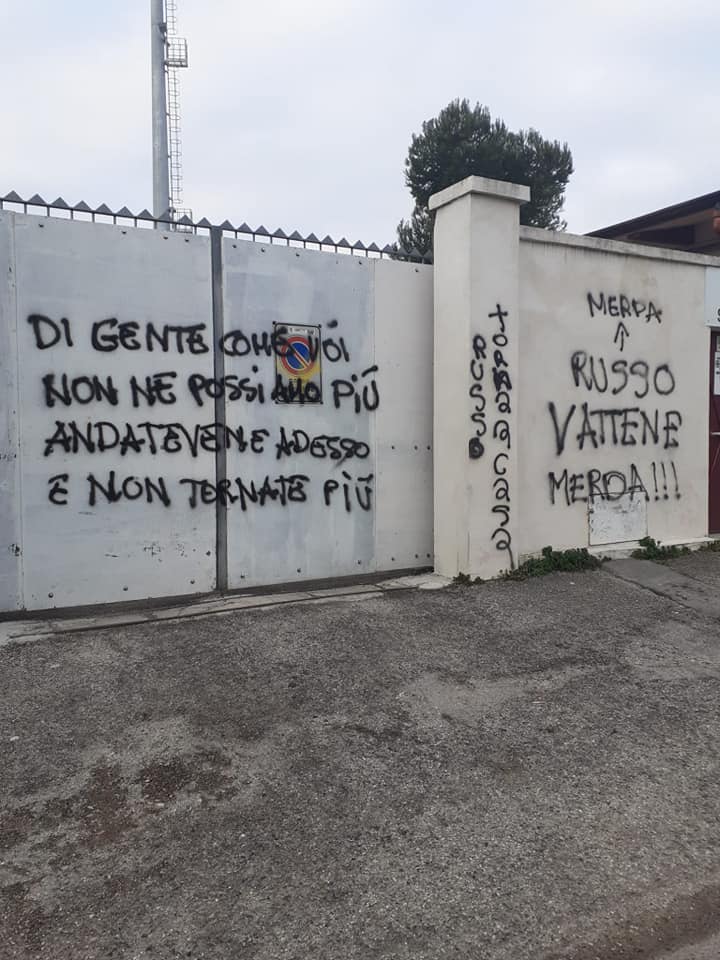 DI GENTE COME VOI
NON NE POSSIAMO PIÚ
ANDATEVENE ADESSO
E NON TORNATE PIÚ
RUSSO
TORNA A CASA
MERDA
RUSSO
VATTENE
MERDA!!!